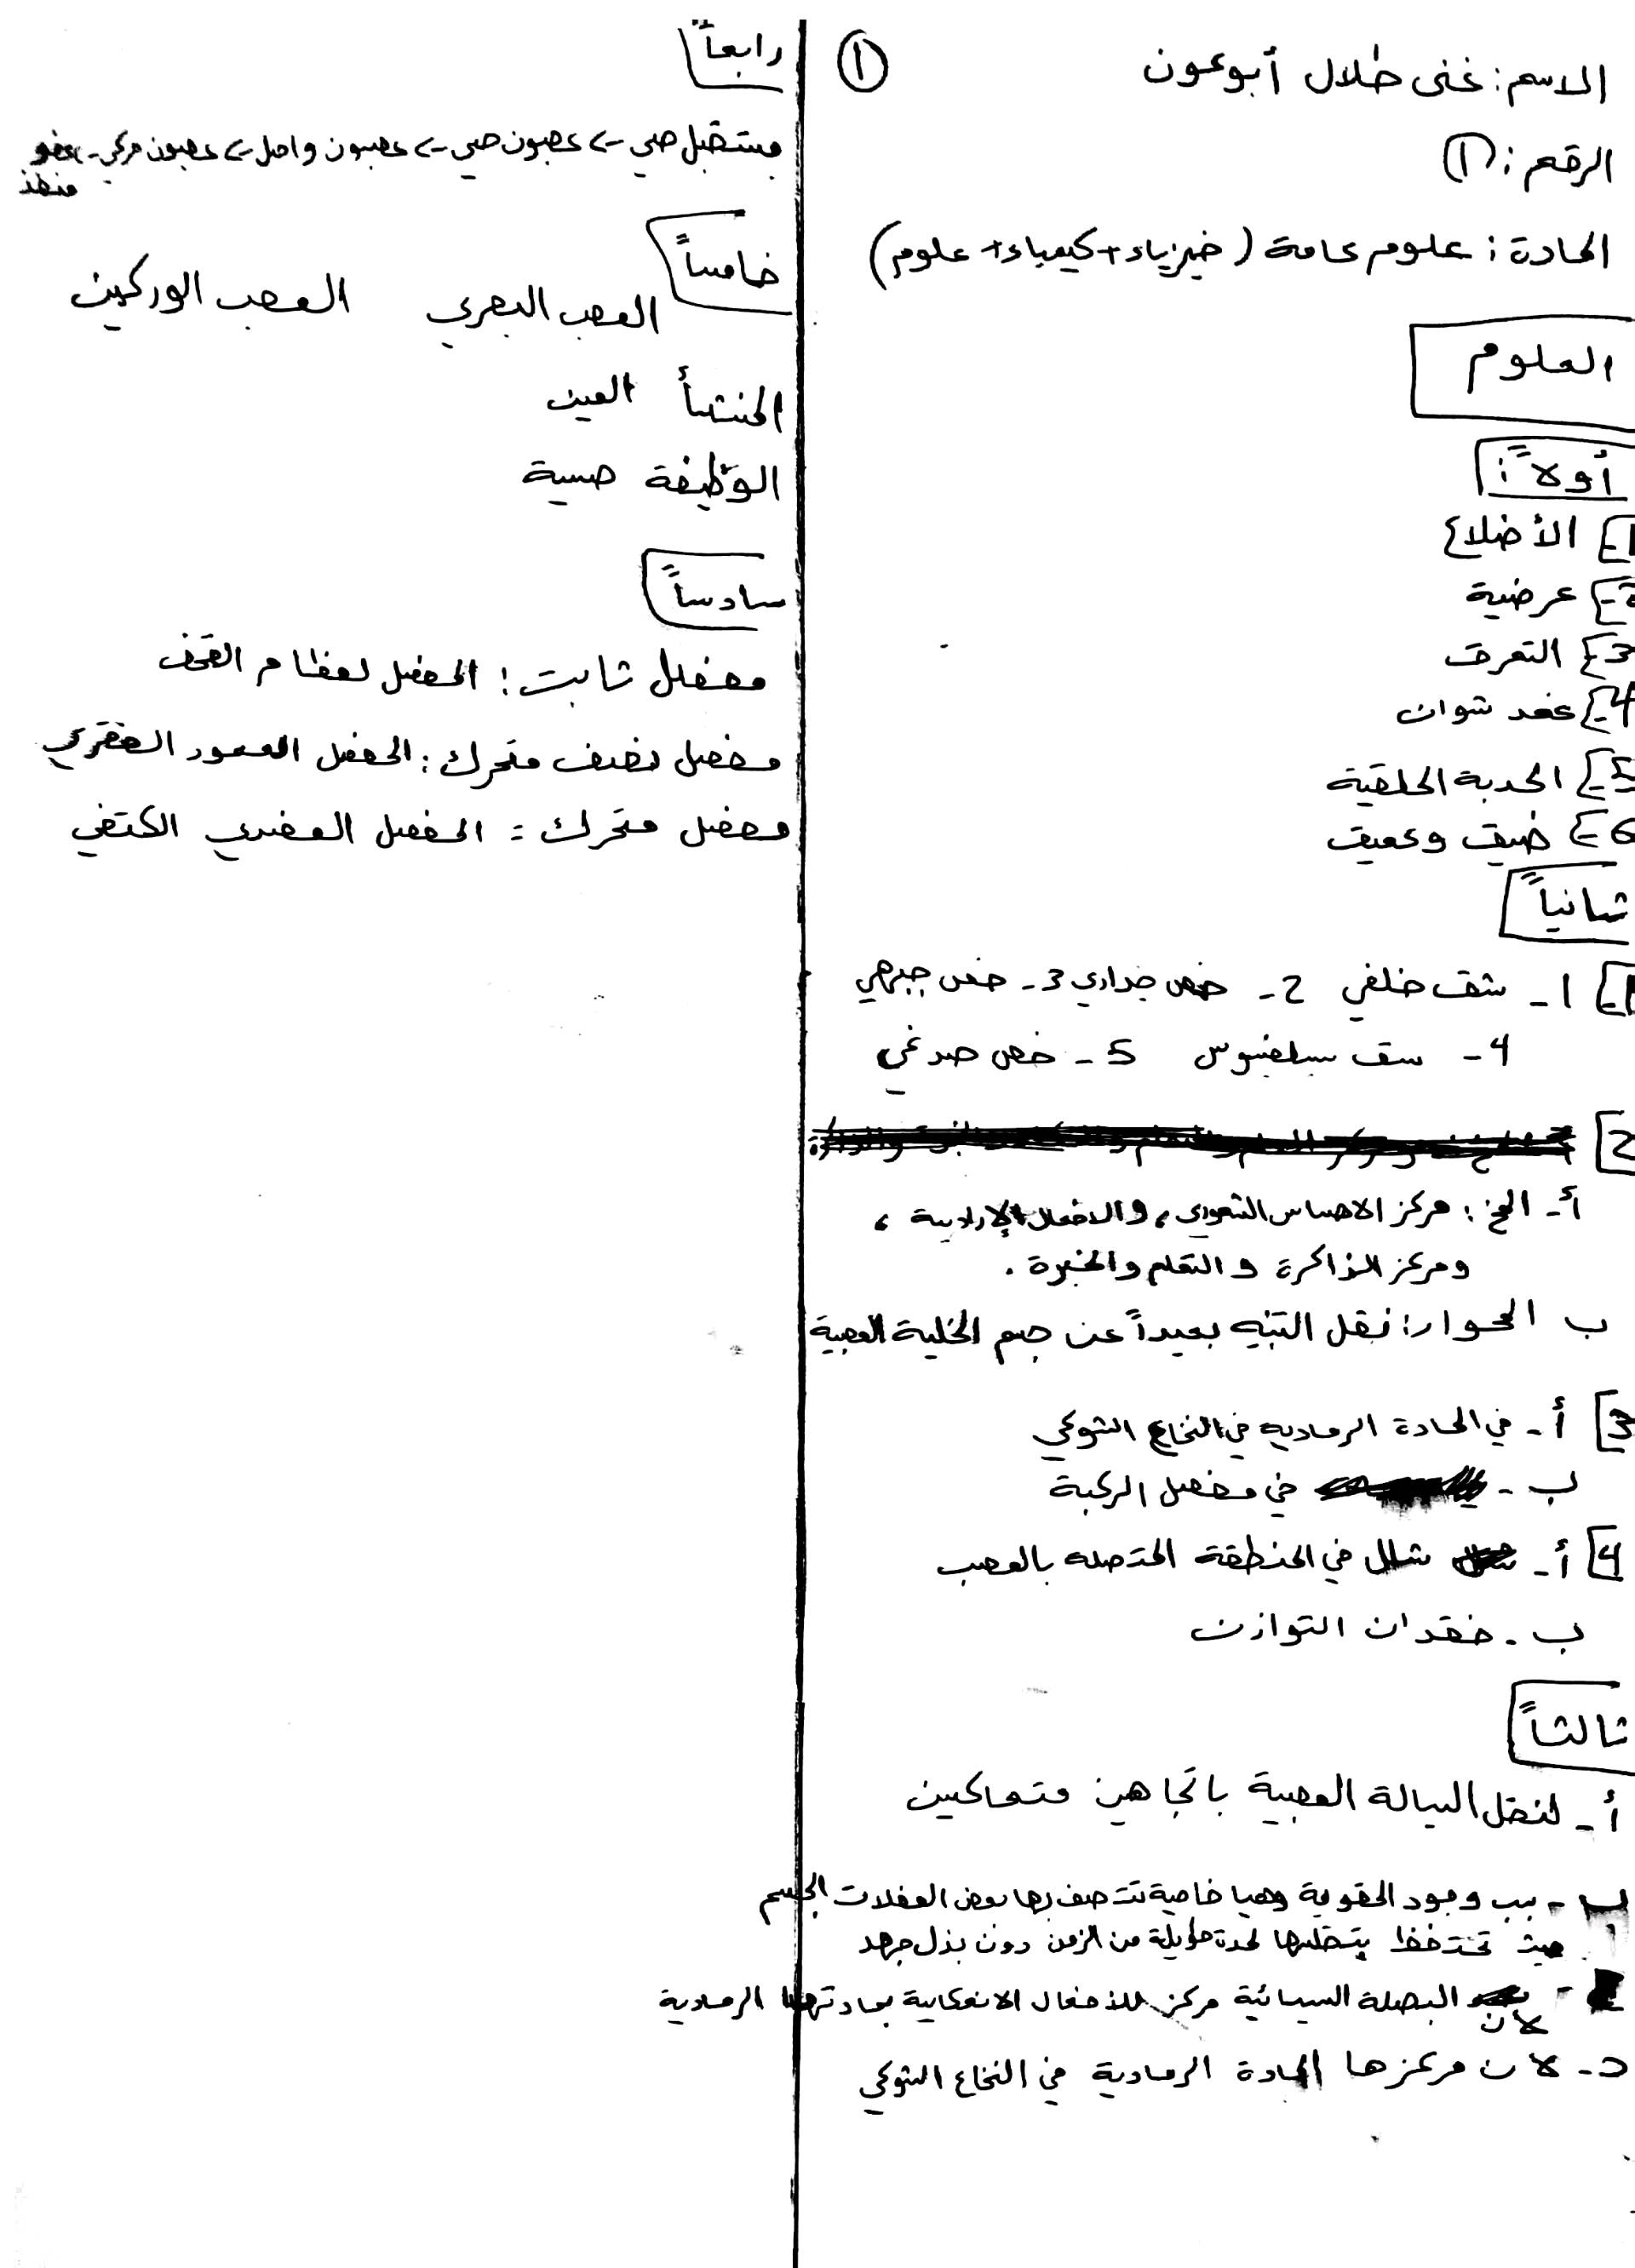 الاسم: غنى طلال أبوعون
①
الرقم: (١)
المادة: علوم عامة (فيزياء + كيمياء + علوم)
العلوم
أولاً:
1- الأضلاع
2- عرضية
3- التعرق
4- عقد شوان
5- الحدبة الحلقية
6- ضيق وعميق
ثانياً
1- 1- شق خلفي 2- فص جداري 3- فص جبهي
4- سق سيلفيوس 5- فص صدغي
2
أ- المخ: مركز الاحساس الشعوري، والافعال الإرادية،
ومركز الذاكرة والتعلم والخبرة.
ب المحوار: نقل التنبيه بعيداً عن جسم الخلية العصبية
3 أ- في المادة الرمادية في النخاع الشوكي
ب- في مفصل الركبة
4 أ- شلل في المنطقة المتصلة بالعصب
ب- فقدان التوازن
ثالثاً
أ- لنقل السيالة العصبية باتجاهين متعاكسين
ب- بسبب وجود المقوية وهيا خاصية تتصف بها بعض العضلات الجسم
حيث تحتفظ بتقلصها لمدة طويلة من الزمن دون بذل جهد
- لان البصلة السيسائية مركز للأفعال الانعكاسية بمادتها الرمادية
د- لان مركزها المادة الرمادية في النخاع الشوكي
رابعاً
مستقبل حسي -> عصبون حسي -> عصبون واصل -> عصبون حركي - عضو
منفذ
خامساً
العصب البصري العصب الوركين
المنشأ العين
الوظيفة حسية
سادساً
مفصل ثابت: المفصل لعظام القحف
مفصل نصف متحرك: المفصل العمود الفقري
مفصل متحرك: المفصل العضدي الكتفي